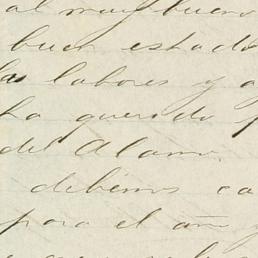 al muy bueno
buen estado
las labores y a
ha querido
del Alamo.
debemos ca
para el año y